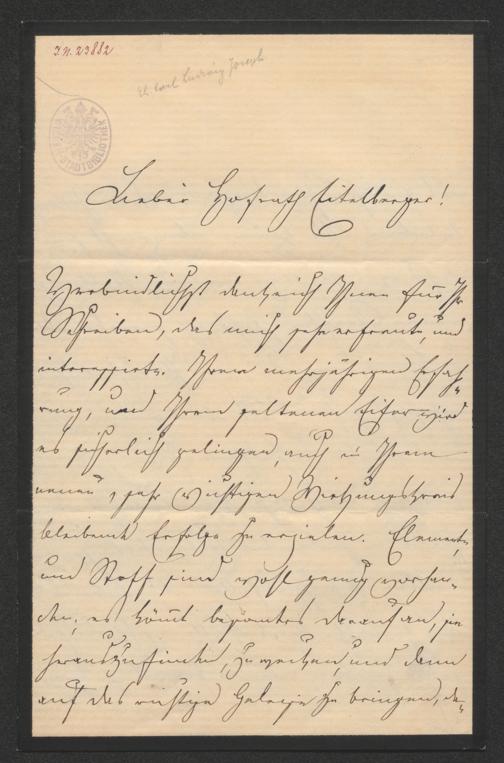 I.N. 23882
Eh. Carl Ludwig Joseph
STADTBIBLIOTHEK
Lieber Hofrath Eitelberger!
Verbindlichst danke ich Ihnen für Ihr
Schreiben, das mich sehr erfreute, und
interessirte. Ihrer mehrjährigen Erfah-
rung, und Ihrem seltenen Eifer wird
es sicherlich gelingen, auch in Ihrem
neuen, sehr wichtigen Wirkungskreis
bleibende Erfolge zu erzielen. Elemente,
und Stoff sind wohl genug vorhan-
den; es kömmt besonders darauf an, sie
herauszufinden, zu wecken, und dann
auf das richtige Geleise zu bringen, da-